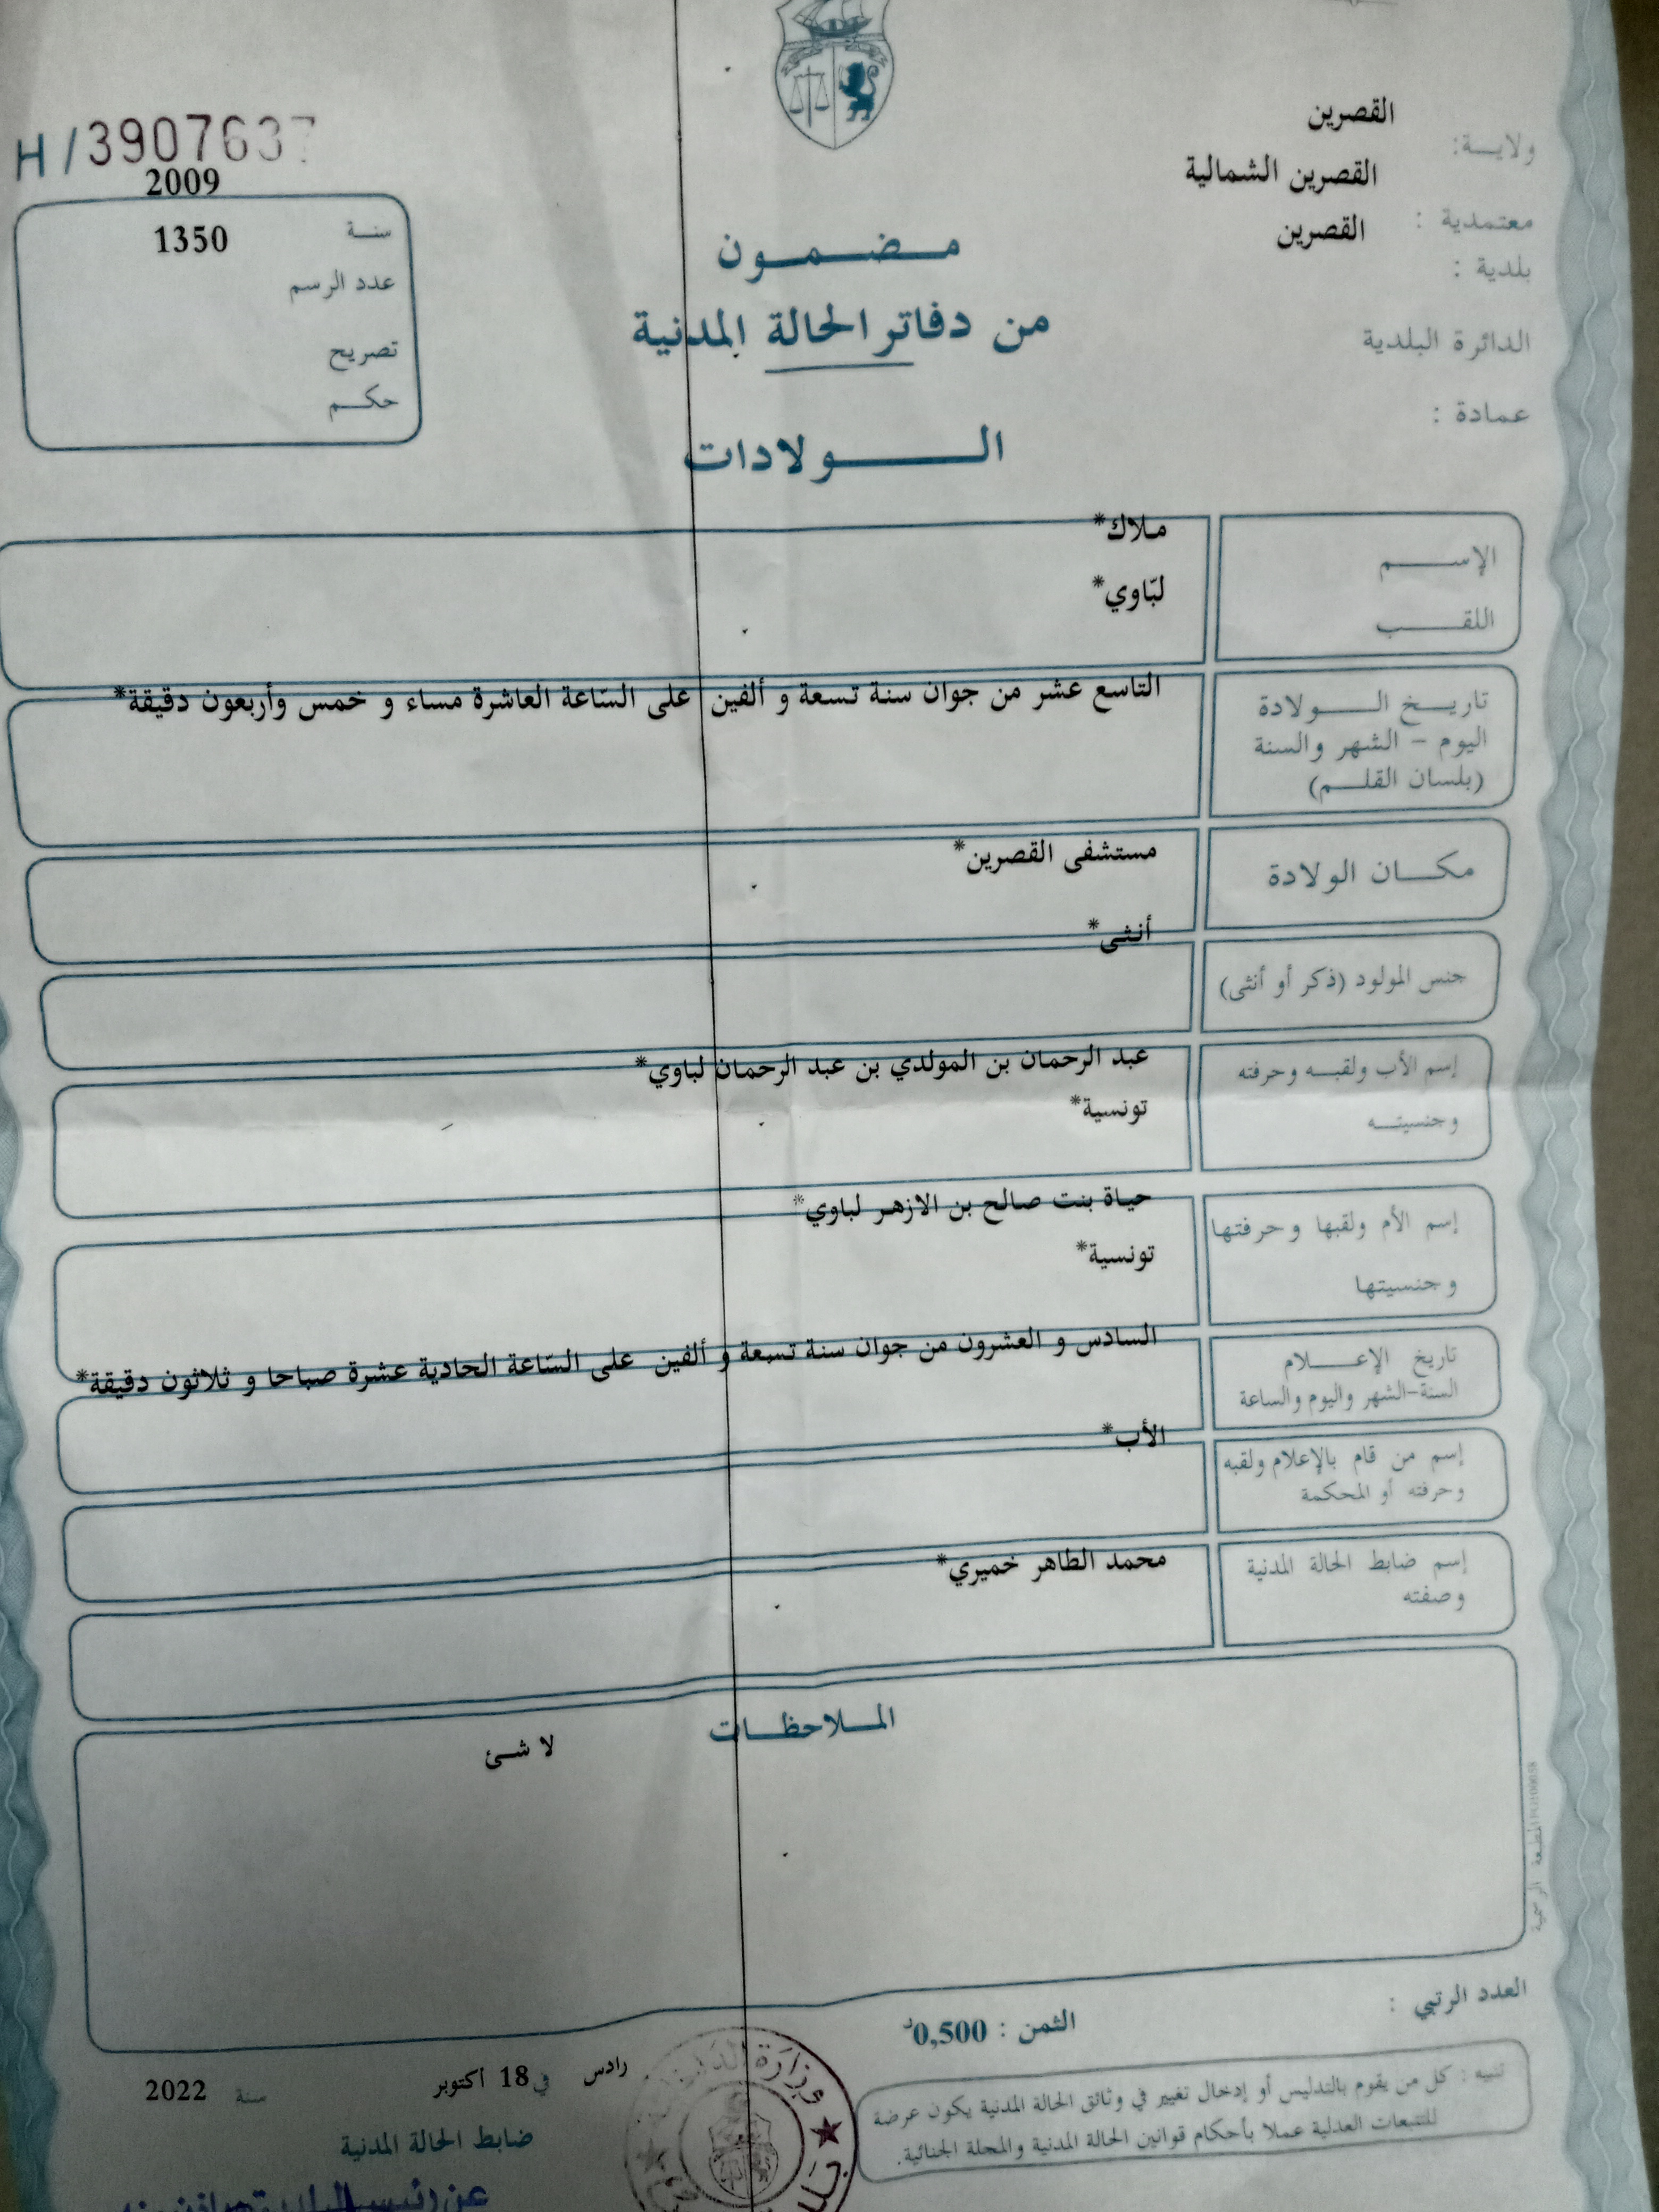 القصرين
ولايـــة:
القصرين الشمالية
معتمدية :
القصرين
بلدية :
الدائرة البلدية
عمادة :
H/3907637
2009
سنـــة
1350
عدد الرسم
تصريح
حكـــم
مـــضـــمـــون
من دفاتر الحالة المدنية
الـــــولادات
الإســـــم
ملاك*
اللقـــــب
لبّاوي*
تاريـــخ الـــــولادة
اليوم - الشهر والسنة
(بلسان القلـــم)
التاسع عشر من جوان سنة تسعة و ألفين على السّاعة العاشرة مساء و خمس وأربعون دقيقة*
مكـــان الولادة
مستشفى القصرين*
جنس المولود (ذكر أو أنثى)
أنثى*
إسم الأب ولقبـــه وحرفته
عبد الرحمان بن المولدي بن عبد الرحمان لباوي*
وجنسيتـــه
تونسية*
إسم الأم ولقبها وحرفتها
حياة بنت صالح بن الازهر لباوي*
وجنسيتها
تونسية*
تاريخ الإعـــلام
السنة-الشهر واليوم والساعة
السادس و العشرون من جوان سنة تسعة و ألفين على السّاعة الحادية عشرة صباحا و ثلاثون دقيقة*
إسم من قام بالإعلام ولقبه
وحرفته أو المحكمة
الأب*
إسم ضابط الحالة المدنية
وصفته
محمد الطاهر خميري*
الملاحظـــات
لا شئ
المطبعة الرسمية
العدد الرتبي :
الثمن : 0,500د
تنبيه : كل من يقوم بالتدليس أو إدخال تغيير في وثائق الحالة المدنية يكون عرضة
للتتبعات العدلية عملا بأحكام قوانين الحالة المدنية والمجلة الجنائية.
رادس في 18 أكتوبر سنة 2022
ضابط الحالة المدنية
وزارة
عن رئيس